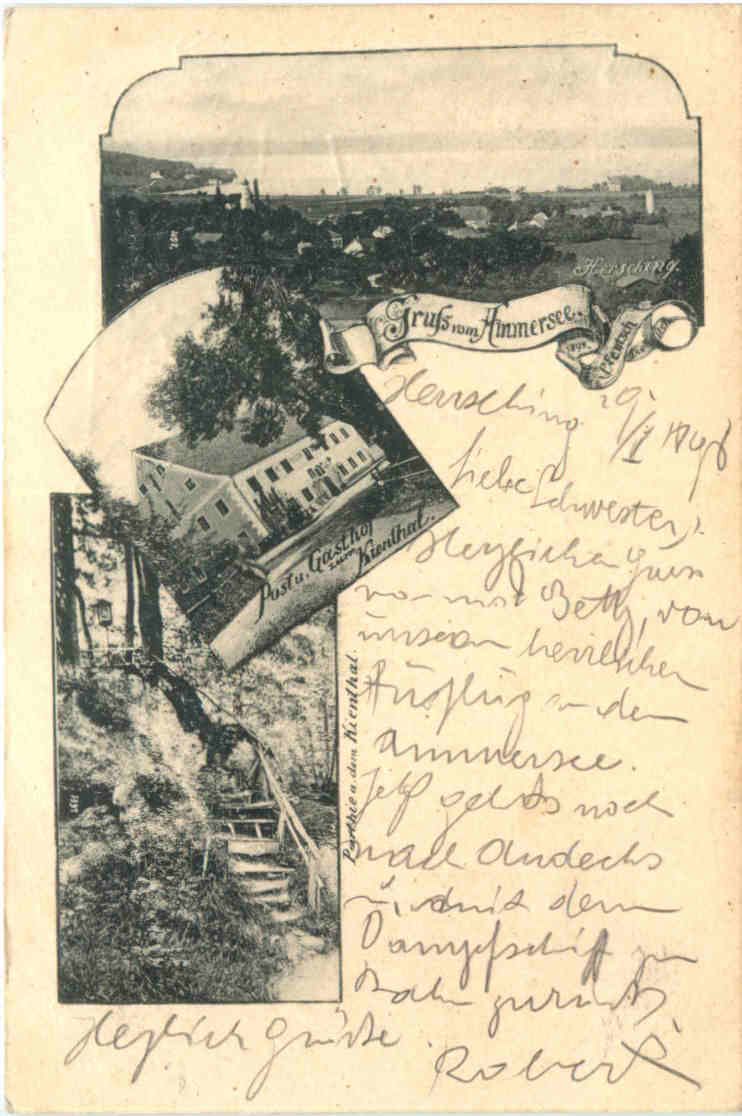 Hersching.
Gruss vom Ammersee.
Post u. Gasthof
zum
Kienthal.
Parthie a. dem Kienthal.
Herrsching
Liebe Schwester,
Herzlichen Gruss
von uns Betty, von
unseren herrlichen
Ausflug an den
Ammersee.
Jetzt gehts noch
nach Andechs
u. mit dem
Dampfschiff zur
Bahn zurück.
Herzlich Grüße
Robert